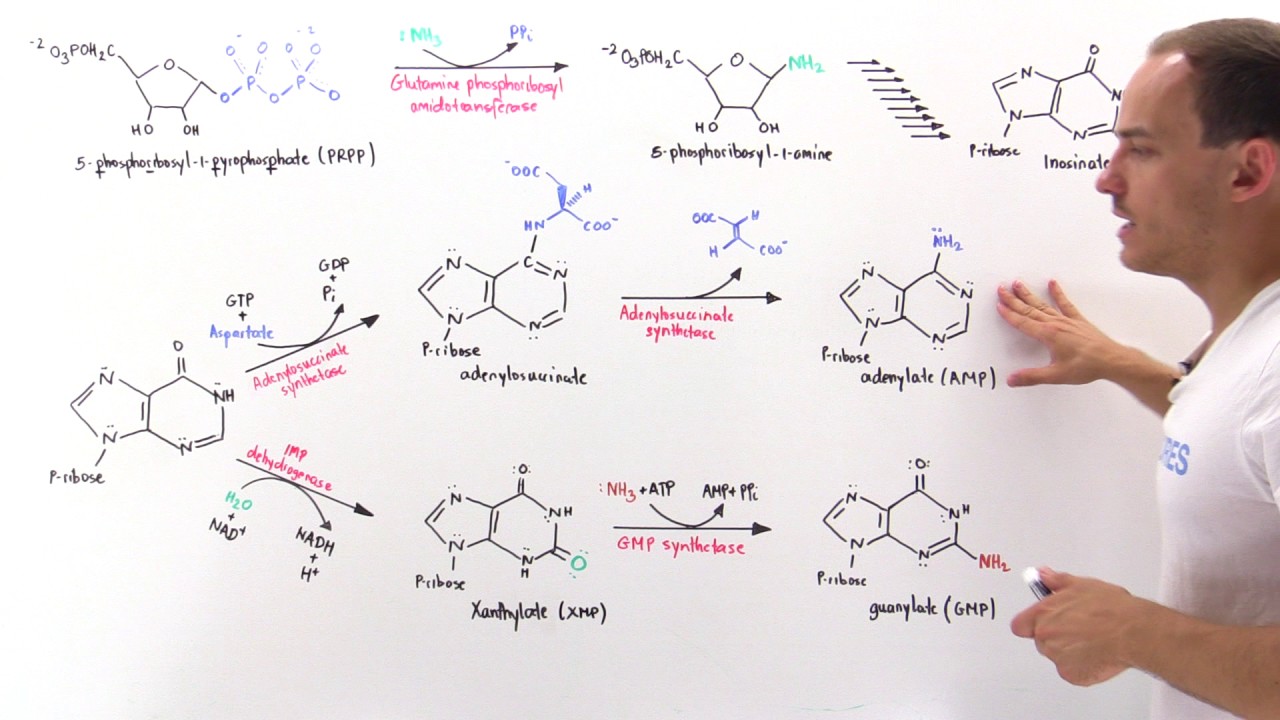 -2 O3POH2C O
O- O O- O -2
O P O P O
HO OH
5-phosphoribosyl-1-pyrophosphate (PRPP)
:NH3 PPi
Glutamine phosphoribosyl
amidotransferase
-2 O3POH2C O NH2
HO OH
5-phosphoribosyl-1-amine
O
N N
N N
P-ribose
Inosinate
O
N NH
N N
P-ribose
GTP
+
Aspartate
GDP
+
Pi
Adenylosuccinate
synthetase
-OOC H
HN COO-
N C N
N N
P-ribose
adenylosuccinate
OOC H
H COO-
Adenylosuccinate
synthetase
NH2
N N
N N
P-ribose
adenylate (AMP)
IMP
dehydrogenase
H2O
+
NAD+
NADH
+
H+
:O:
N NH
N N O
H
P-ribose
Xanthylate (XMP)
:NH3 + ATP AMP + PPi
GMP synthetase
:O:
N N H
N N NH2
P-ribose
guanylate (GMP)
RES